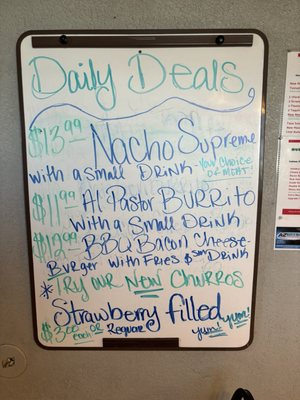 Daily Deals
$13.99 Nacho Supreme
with a small Drink - Your Choice
of Meat!
$11.99 Al Pastor Burrito
with a Small Drink
$12.99 BBQ Bacon Cheese-
Burger with Fries & sm Drink
* Try our New Churros
Strawberry filled
$3.00 each or Regular yum! yum!